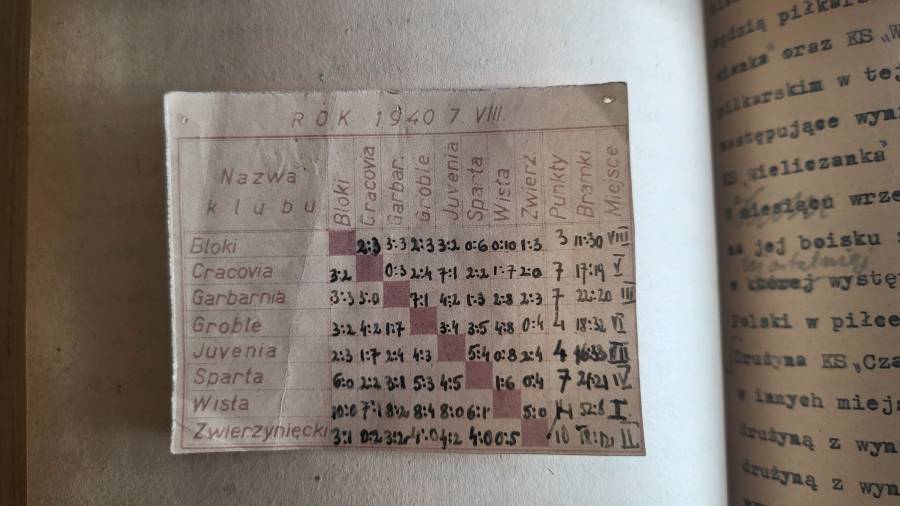 ROK 1940 7 VIII.
Nazwa klubu Bloki Cracovia Garbar. Groble Juvenia Sparta Wisła Zwierz. Punkty Bramki Miejsce
Bloki 2:3 3:3 2:3 3:2 0:6 0:10 1:3 3 11:30 VIII
Cracovia 3:2 0:3 2:4 7:1 2:2 1:7 2:0 7 17:19 V
Garbarnia 3:3 3:0 7:1 4:2 1:3 2:8 2:3 7 22:20 III
Groble 3:2 4:2 1:7 3:4 3:5 4:8 0:4 4 18:32 VI
Juvenia 2:3 1:7 2:4 4:3 5:4 0:8 2:4 4 VII
Sparta 6:0 2:2 3:1 5:3 4:5 1:6 0:4 7 21:21 IV
Wisła 10:0 7:1 8:2 8:4 8:0 6:1 5:0 14 52:8 I
Zwierzyniecki 3:1 0:2 3:2 4:0 4:2 4:0 0:5 10 18:12 II
ędzią piłkars
oraz KS „W
piłkarskim w tej
następujące wyni
KS „Wieliczanka"
miesiącu wrze
na jej boisku
w której wystę
Polski w piłce
Drużyna KS „Cza
w innych miejs
drużyną z wyn
drużyną z wyn